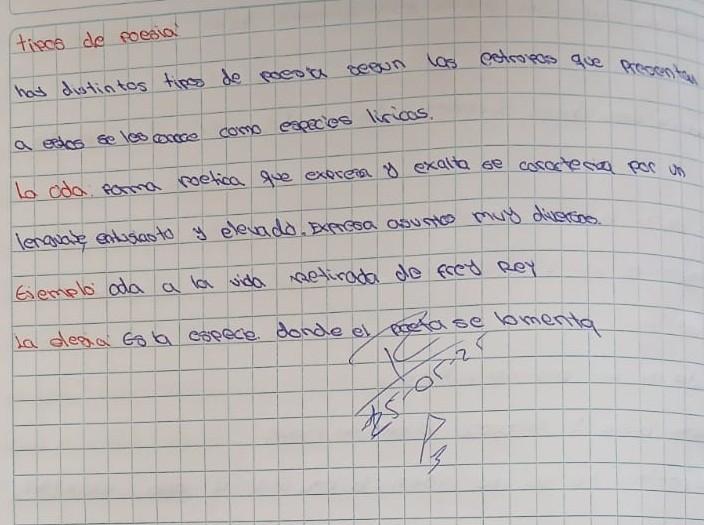 tipos de poesia
hay distintos tipos de poesia segun las estrofas que presentan
a estos se les conoce como especies liricas.
La oda: forma poetica que expresa y exalta se caracteriza por un
lenguaje entusiasto y elevado. Expresa asuntos muy diversos.
Ejemplo oda a la vida retirada de Frey Rey
La elegia Es la espece. donde el poeta se lamenta
25-05-25
P3